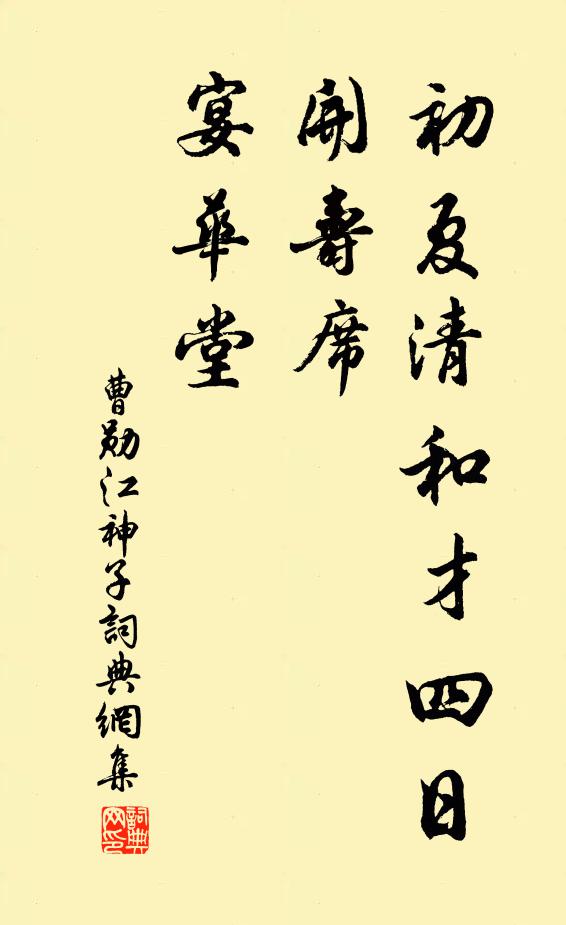 初夏清和才四日
開壽席
宴華堂
曹勛江神子詞典網集
詞典网印